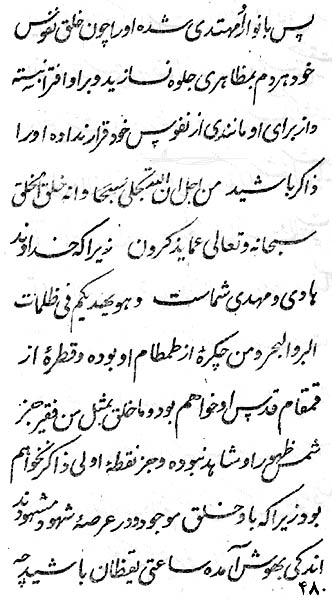 پس بانوار او مهتدی شده او را چون خلق نفوس
خود هر دم بمظاهری جلوه نسازید و بر او افترا نبسته
و از برای او مانندی از نفوس خود قرار نداده او را
ذاکر باشید من اجل ان الله یتجلی سبحانه خلق الخلق
سبحانه و تعالی عما یذکرون زیرا که خداوند
هادی و مهدی شماست و هو یهدیکم فی ظلمات
البر و البحر و من چکرهٔ از طمطام او بوده و قطرهٔ از
قمقام قدس او خواهم بود و ما خلق بمثل من فقیر جز
شمس ظهور او شاهد نبوده و جز نقطهٔ اولی ذاکر نخواهم
بود زیرا که باو خلق موجود و در عرصهٔ شهود مشهودند
اندکی بهوش آمده ساعتی یقظان باشید چه
۴۸۰